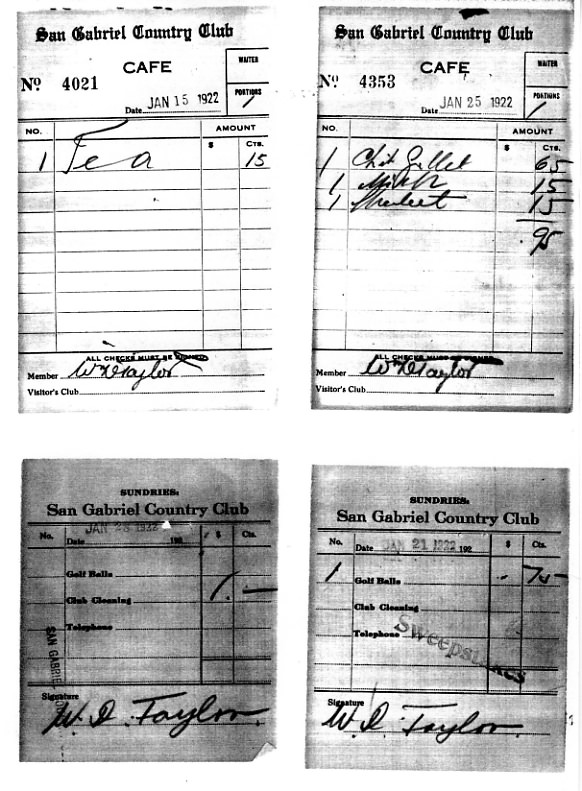 San Gabriel Country Club
CAFE
WAITER
Nº 4021
PORTIONS
1
Date JAN 15 1922
NO. AMOUNT
$ CTS.
1 Tea 15
ALL CHECKS MUST BE SIGNED
Member WDTaylor
Visitor's Club
San Gabriel Country Club
CAFE
WAITER
Nº 4353
PORTIONS
1
Date JAN 25 1922
NO. AMOUNT
$ CTS.
1 65
1 Milk 15
1 Sherbet 15
.95
ALL CHECKS MUST BE SIGNED
Member WDTaylor
Visitor's Club
SUNDRIES.
San Gabriel Country Club
No. Date JAN 1922 192 $ Cts.
Golf Balls 1.—
Club Cleaning
Telephone
SAN GABRIEL
Signature
W. D. Taylor
SUNDRIES.
San Gabriel Country Club
No. Date JAN 21 1922 192 $ Cts.
1 Golf Balls
Club Cleaning
Telephone
Sweepstakes
Signature
W. D. Taylor